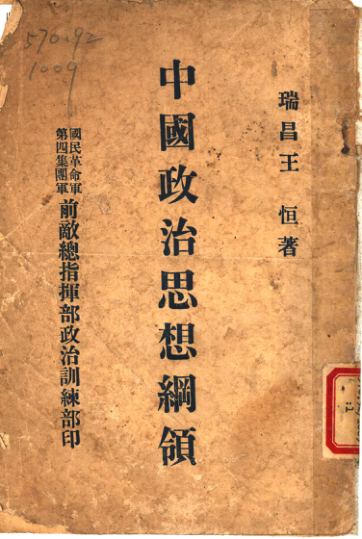 瑞昌王 恒著
中國政治思想綱領
國民革命軍
第四集團軍
前敵總指揮部政治訓練部印
570.92
1009